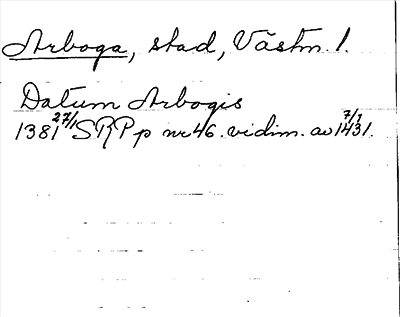 Arboga, stad, Västm. l.
Datum Arbogis
1381 27/1 SRPp nr 46. vidim. av 1431 7/7.